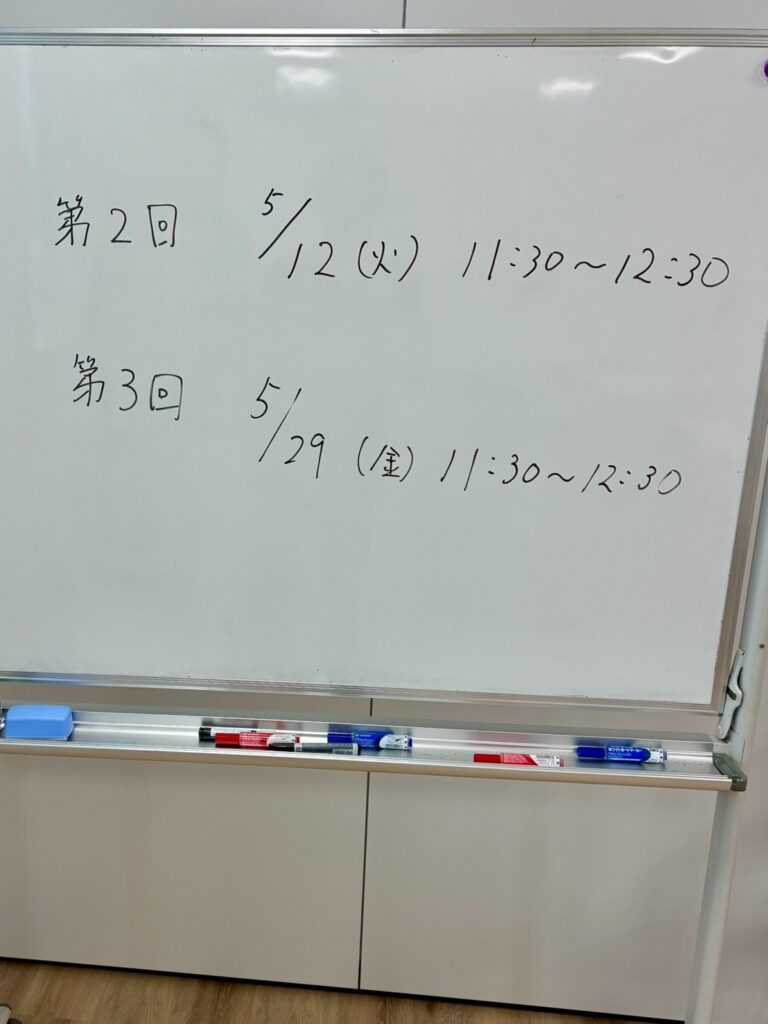 第2回 5/12(火) 11:30〜12:30
第3回 5/29(金) 11:30〜12:30